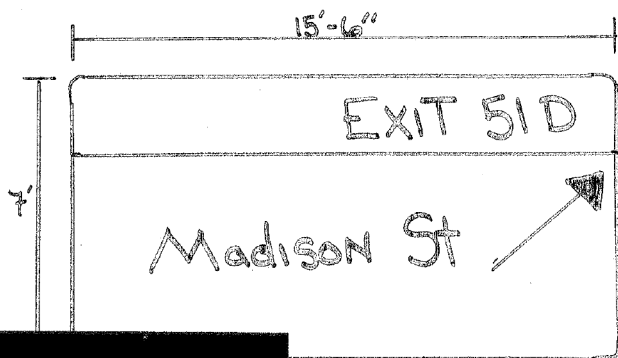 15'-6"
EXIT 51D
7'
Madison St